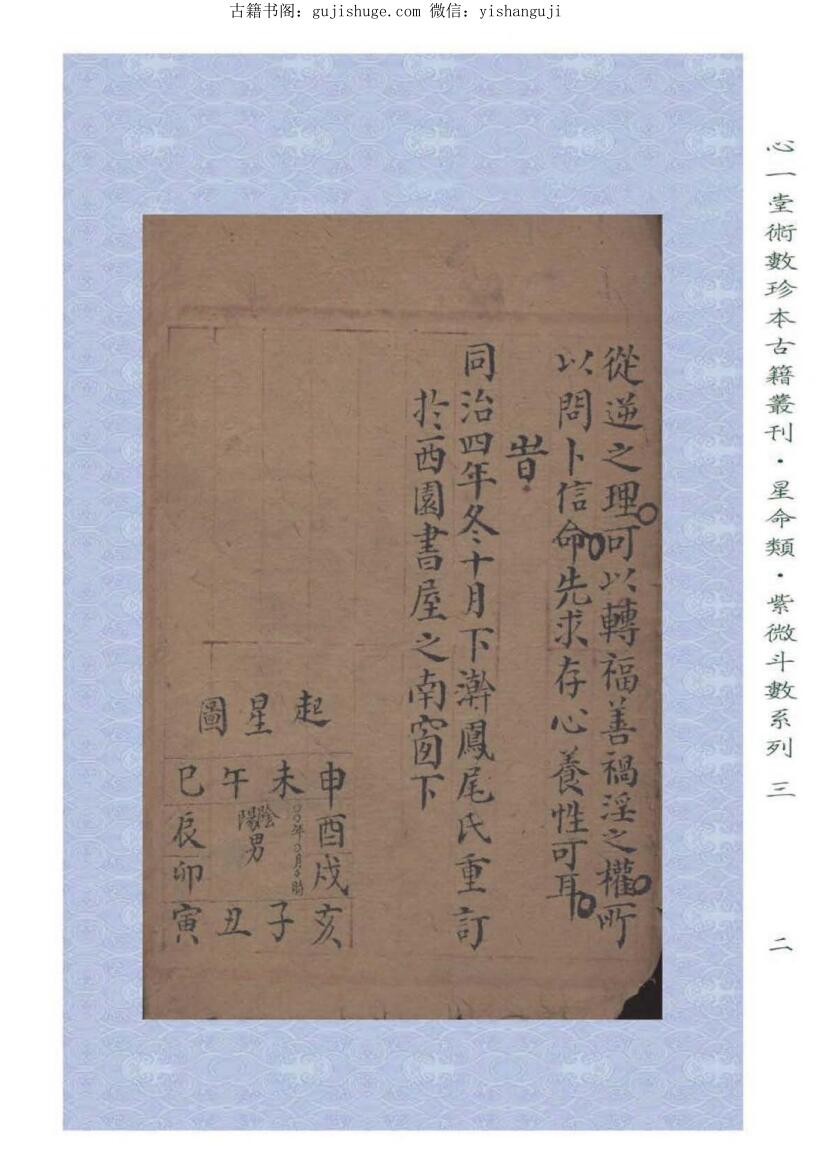 古籍书阁：gujishuge.com 微信：yishanguji
心一堂術數珍本古籍叢刊·星命類·紫微斗數系列 三
二
從逆之理可以轉福善禍淫之權所
以問卜信命先求存心養性可耳
旹
同治四年冬十月下澣鳳尾氏重訂
於西園書屋之南窗下
起星圖
申未午巳
酉辰
戌卯
亥子丑寅
陰陽男
〇〇年〇月〇時